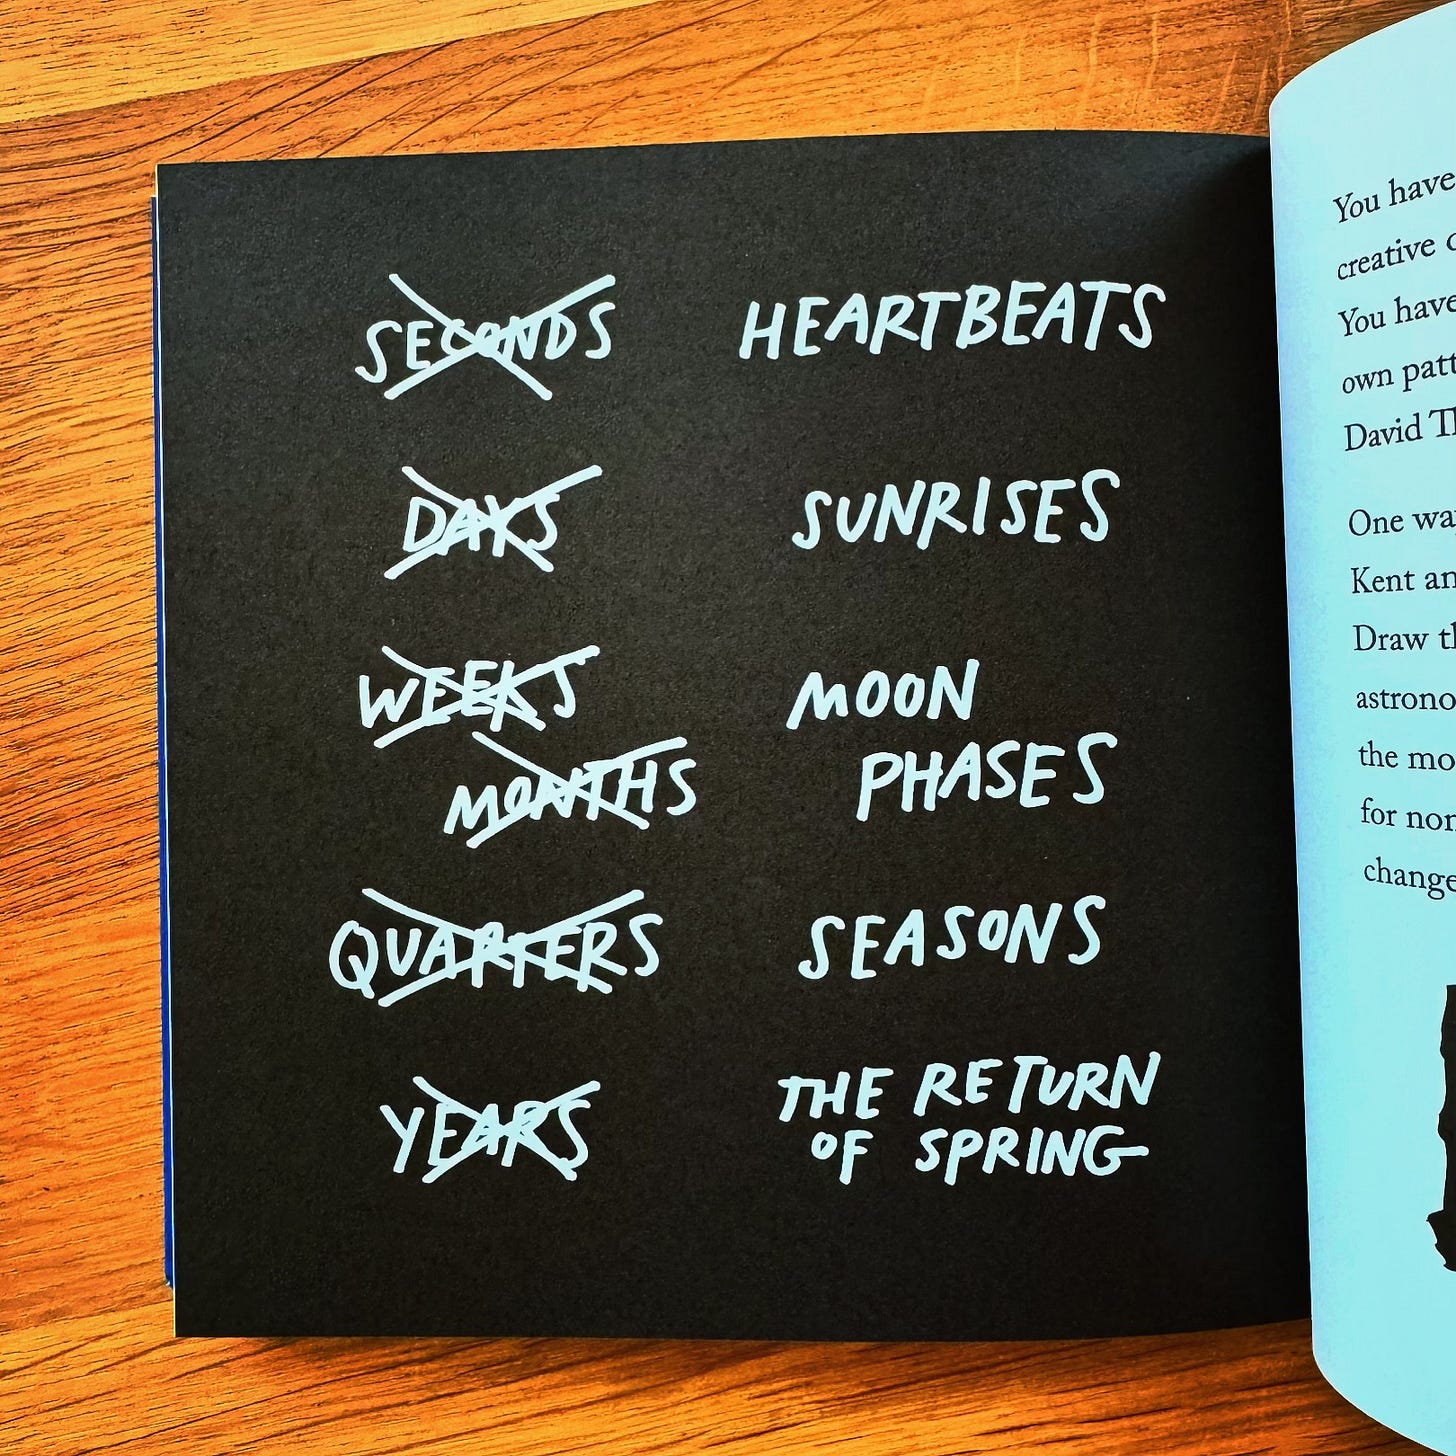 SECONDS HEARTBEATS
DAYS SUNRISES
WEEKS MOON
MONTHS PHASES
QUARTERS SEASONS
YEARS THE RETURN
OF SPRING
You have
creative
You have
own
David
One
Kent
Draw
the
for
change